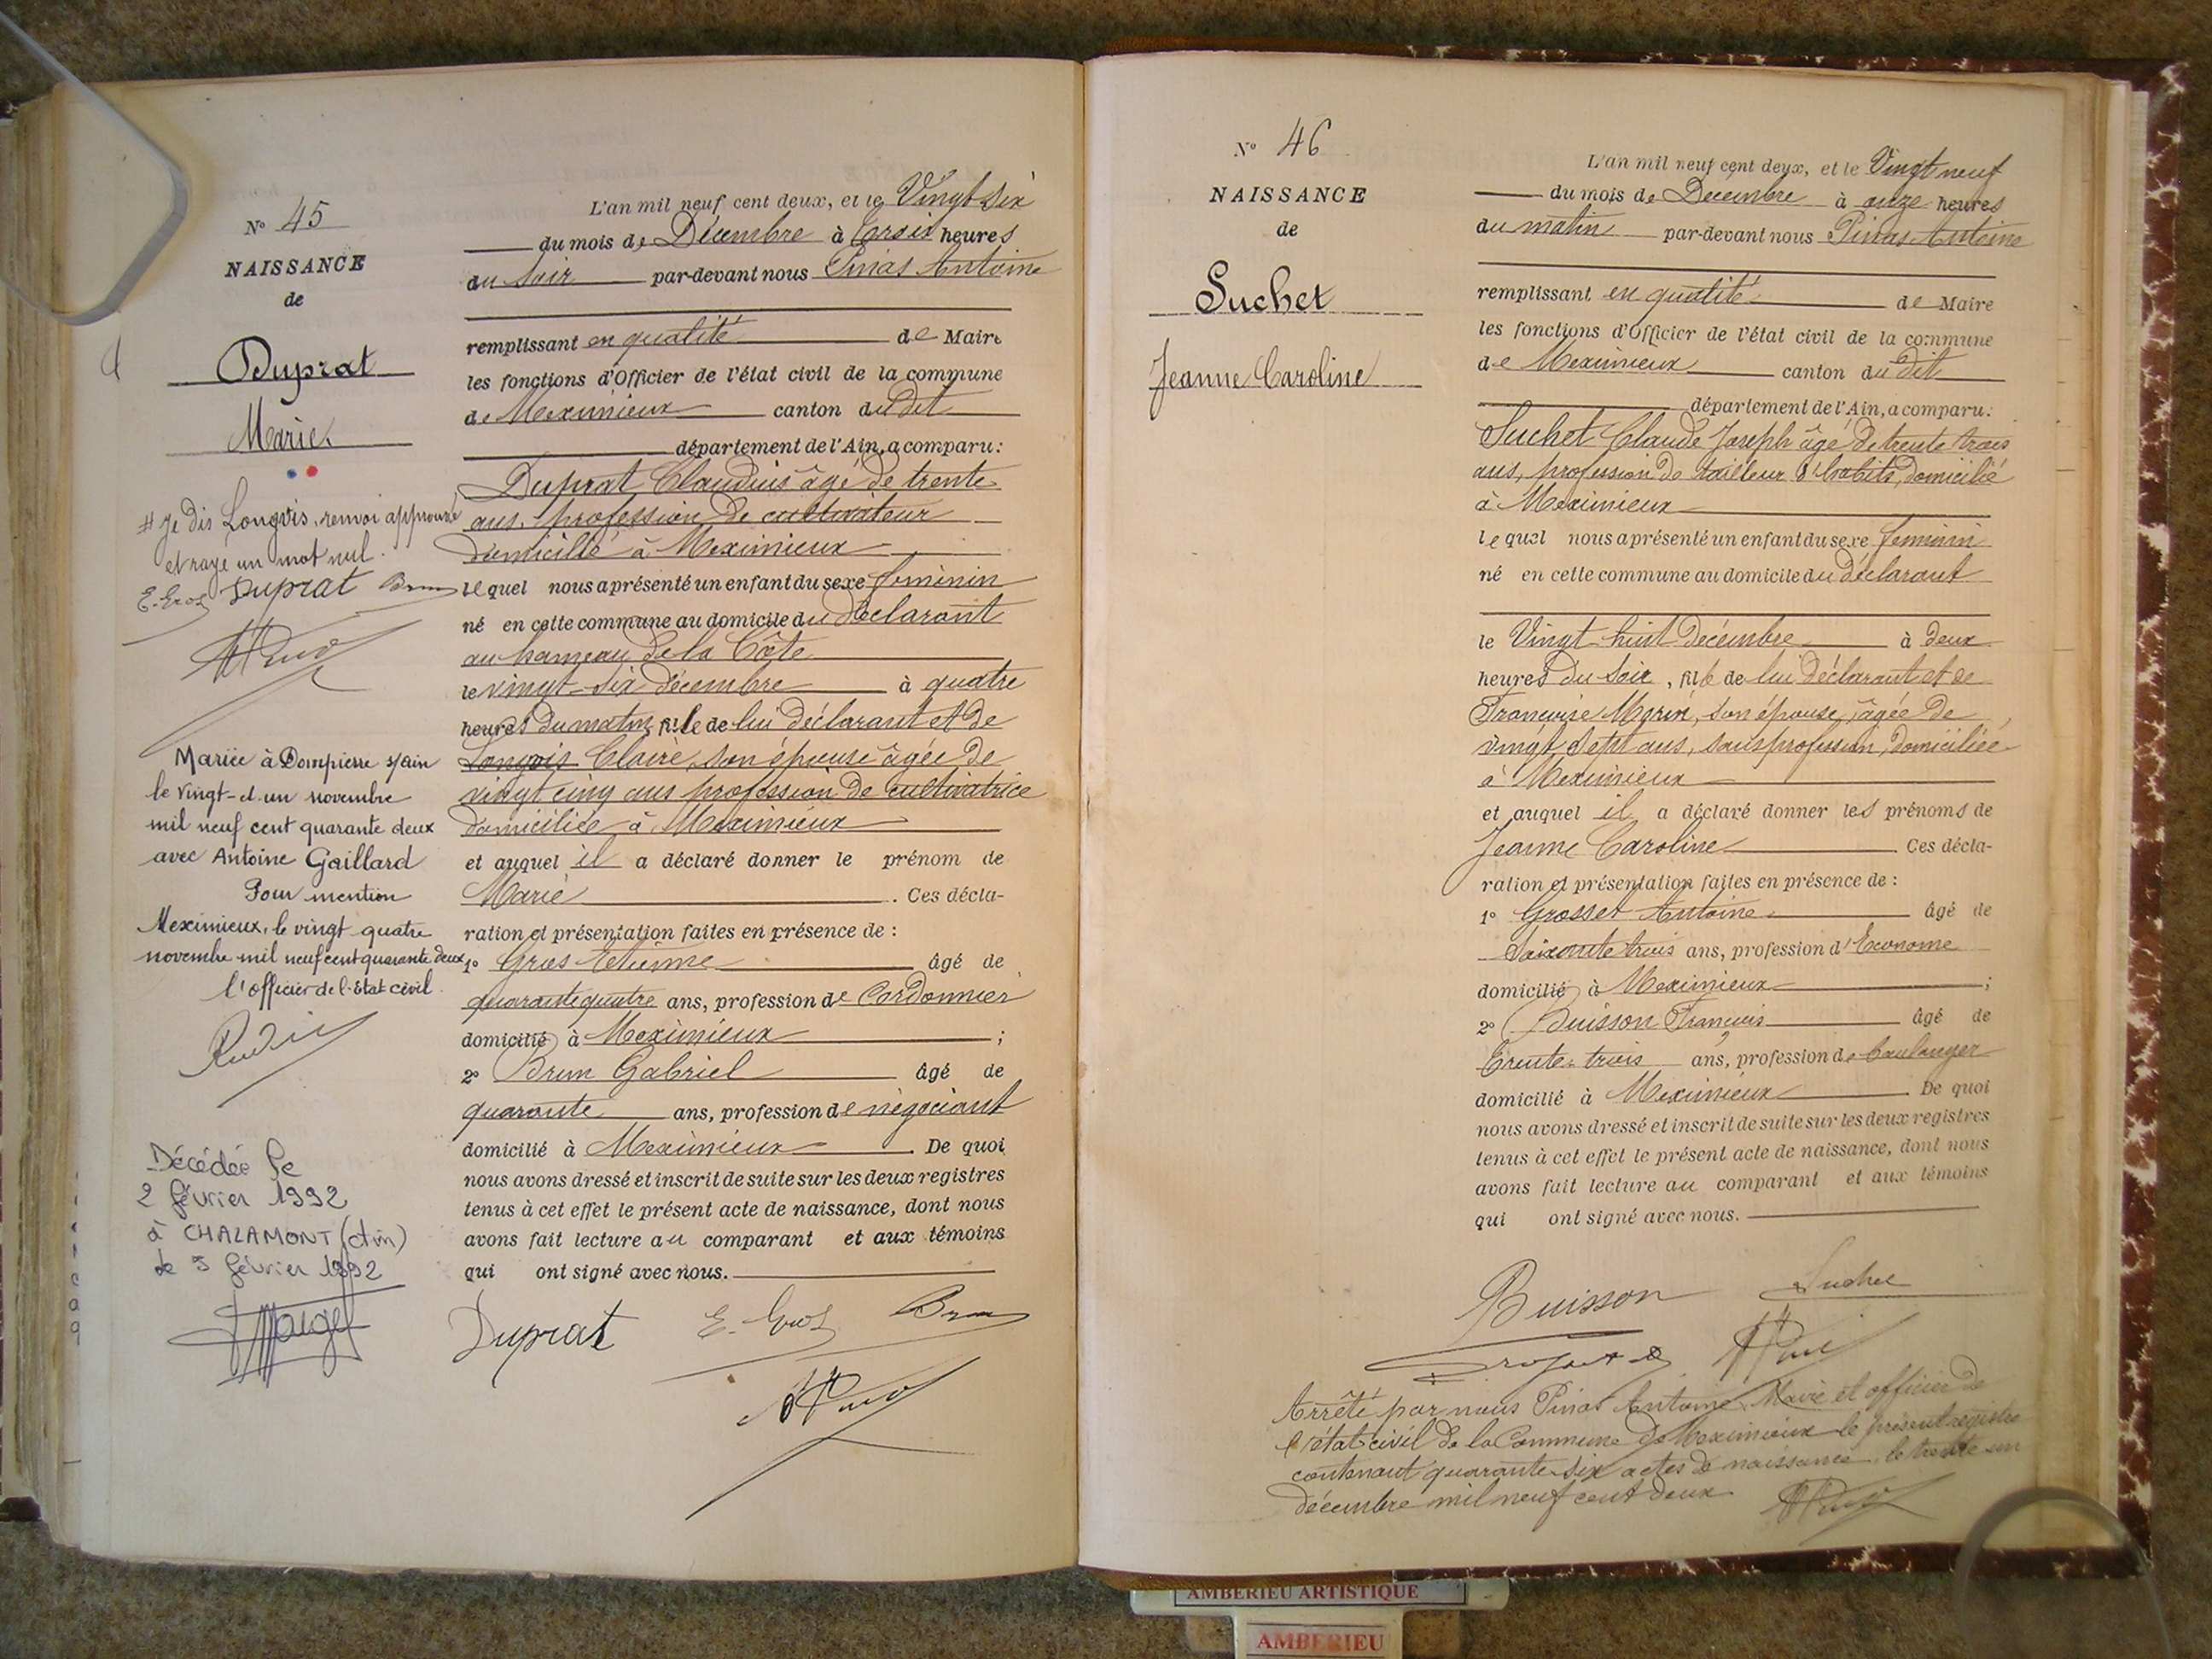 N° 45
NAISSANCE
de
Duprat
Marie
# je dis Longvis, renvoi approuvé
et rayé un mot nul.
E. Gros Duprat Brun
Mariée à Dompierre s/ain
le vingt-et-un novembre
mil neuf cent quarante deux
avec Antoine Gaillard
Pour mention
Meximieux, le vingt quatre
novembre mil neuf cent quarante deux
l'officier de l'Etat civil
Décédée le
2 février 1992
à CHALAMONT (Ain)
le 3 février 1992
L'an mil neuf cent deux, et le Vingt six
du mois de Décembre à trois heures
du soir par-devant nous Pinas Antoine
remplissant en qualité de Maire
les fonctions d'Officier de l'état civil de la commune
de Meximieux canton du dit
département de l'Ain, a comparu:
Duprat Claudius âgé de trente
ans, profession de cultivateur
domicilié à Meximieux
lequel nous a présenté un enfant du sexe féminin
né en cette commune au domicile du déclarant
au hameau de la Côte
le vingt-six décembre à quatre
heures du matin, fille de lui déclarant et de
Longvis Claire, son épouse âgée de
vingt cinq ans profession de cultivatrice
domiciliée à Meximieux
et auquel il a déclaré donner le prénom de
Marie . Ces décla-
ration et présentation faites en présence de :
1° Gros Etienne âgé de
quarante quatre ans, profession de Cordonnier
domicilié à Meximieux ;
2° Brun Gabriel âgé de
quarante ans, profession de négociant
domicilié à Meximieux . De quoi
nous avons dressé et inscrit de suite sur les deux registres
tenus à cet effet le présent acte de naissance, dont nous
avons fait lecture au comparant et aux témoins
qui ont signé avec nous.
Duprat E. Gros Brun
N° 46
NAISSANCE
de
Suchet
Jeanne Caroline
L'an mil neuf cent deux, et le Vingt neuf
du mois de Décembre à onze heures
du matin par-devant nous Pinas Antoine
remplissant en qualité de Maire
les fonctions d'Officier de l'état civil de la commune
de Meximieux canton du dit
département de l'Ain, a comparu:
Suchet Claude Joseph âgé de trente trois
ans, profession de tailleur d'habits, domicilié
à Meximieux
lequel nous a présenté un enfant du sexe féminin
né en cette commune au domicile du déclarant
le Vingt-huit décembre à deux
heures du soir, fille de lui déclarant et de
Françoise Morin, son épouse, âgée de
vingt sept ans, sans profession, domiciliée
à Meximieux
et auquel il a déclaré donner les prénoms de
Jeanne Caroline . Ces décla-
ration et présentation faites en présence de :
1° Grosset Antoine âgé de
Soixante trois ans, profession d'Econome
domicilié à Meximieux ;
2° Buisson François âgé de
trente-trois ans, profession de boulanger
domicilié à Meximieux . De quoi
nous avons dressé et inscrit de suite sur les deux registres
tenus à cet effet le présent acte de naissance, dont nous
avons fait lecture au comparant et aux témoins
qui ont signé avec nous.
Buisson Suchet
Arrêté par nous Pinas Antoine, Maire et officier de
l'état civil de la Commune de Meximieux le présent registre
contenant quarante-six actes de naissance, le trente un
décembre mil neuf cent deux
AMBERIEU ARTISTIQUE
AMBERIEU